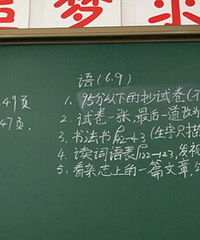 梦
语(6.9)
49页
1. 95分以下的抄试卷(不
47页
2. 试卷一张,最后一道改为
3. 书法书P42-43(生字只描
4. 读词语表P122-123,发视
5. 看杂志上的一篇文章,